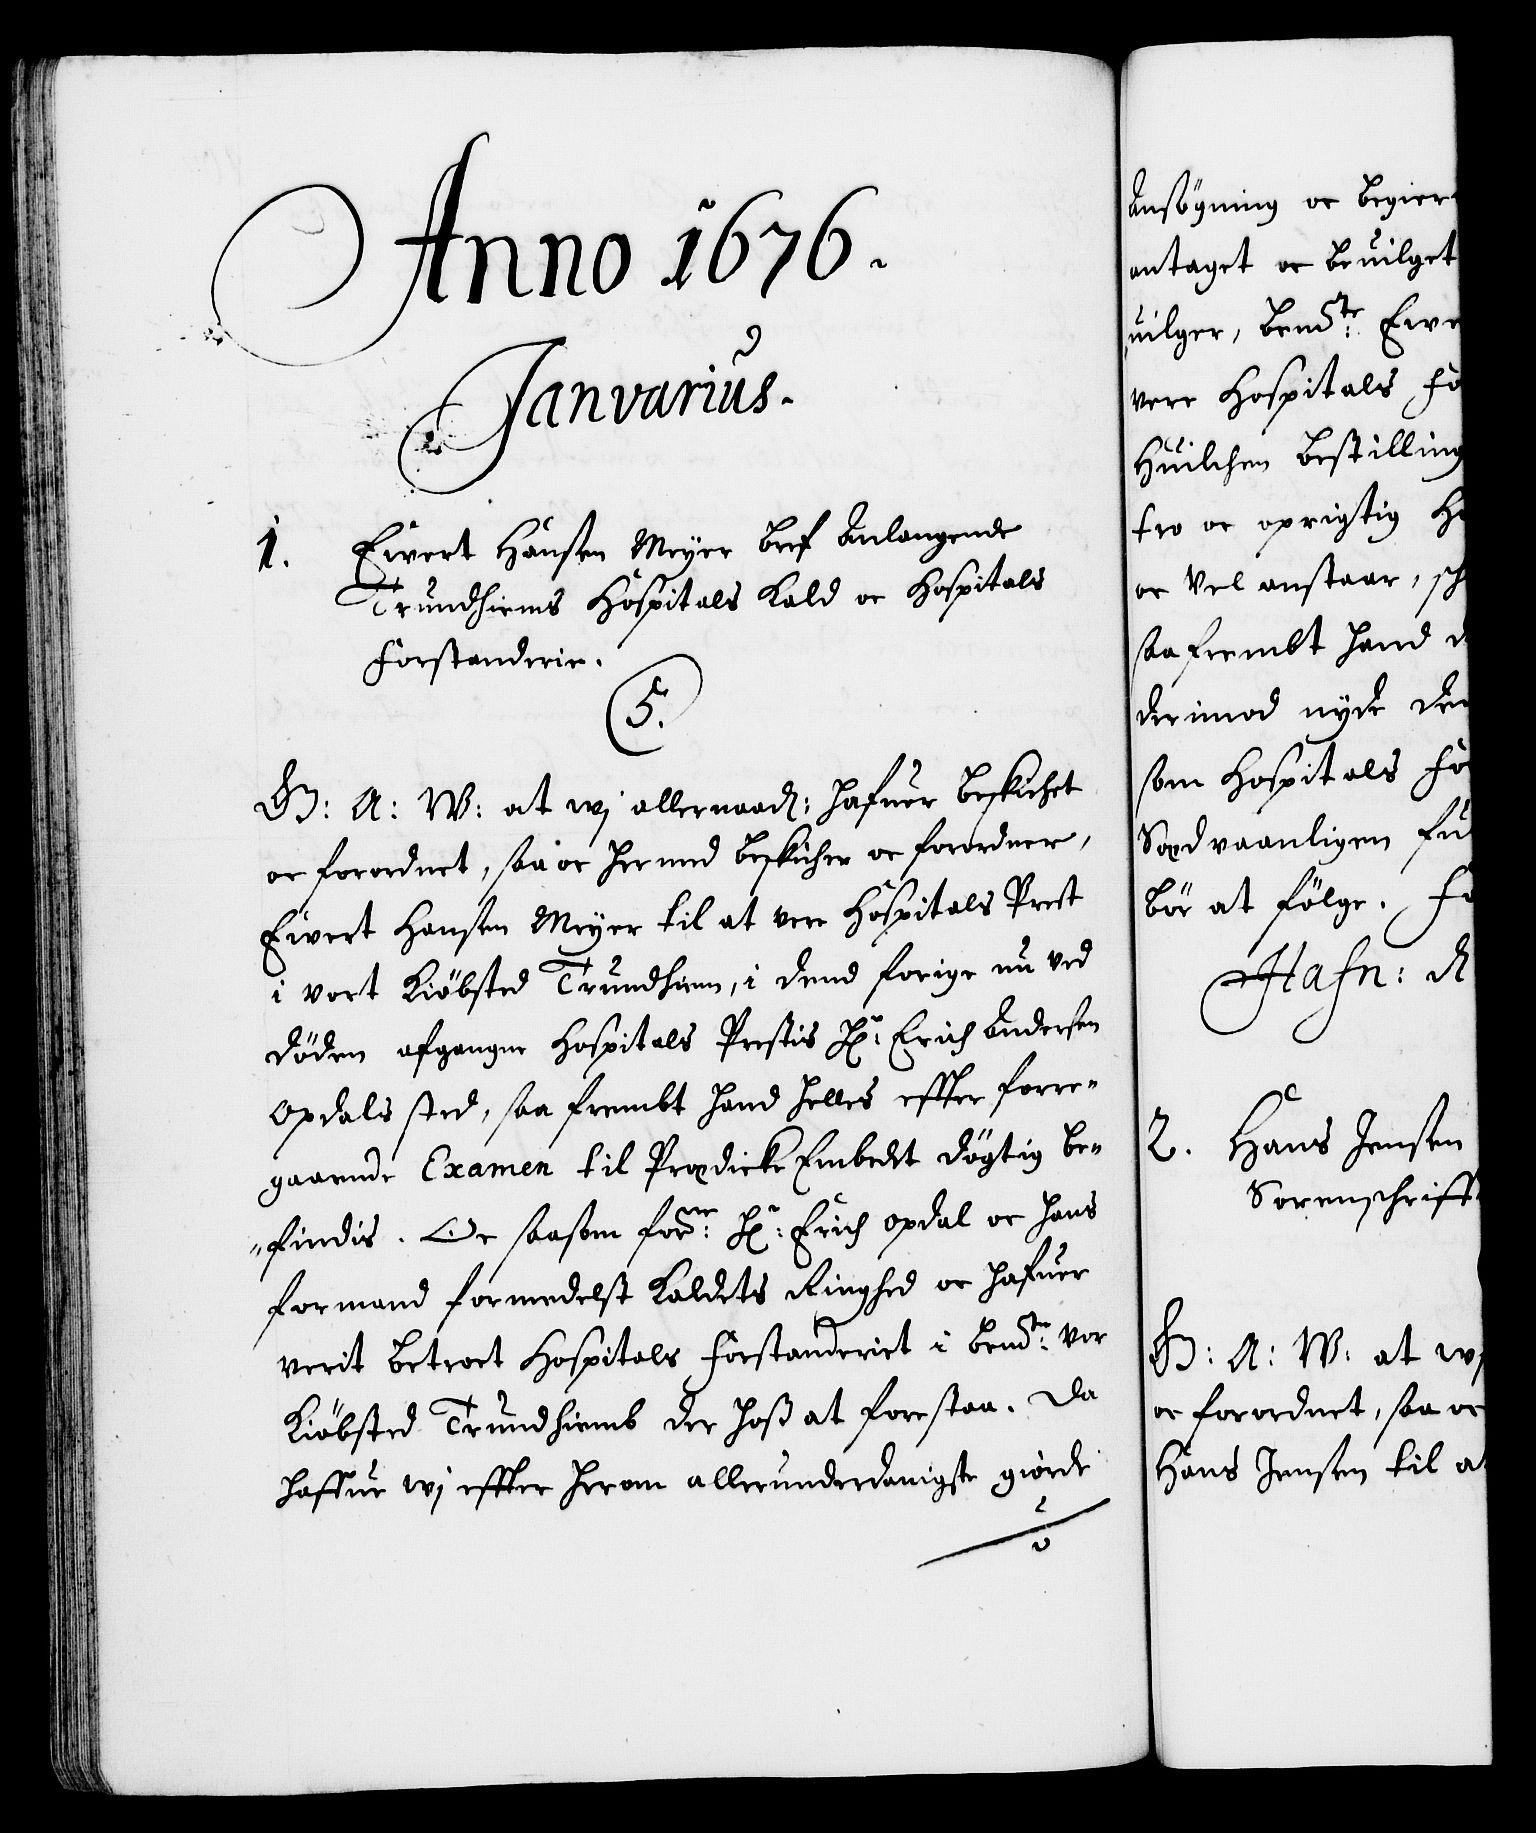 Anno 1676.
Janvarius.
1. Eivert Hansen Meyer bref Anlangende
Trundhiems Hospitals Kald oc Hospitals
Forstanderie.
5.
G: A: W: at wj allernaad: hafuer beskichet
oc forordnet, saa oc hermed beskicher oc forordner,
Eivert Hansen Meyer til at vere Hospitals Prest
i vort Kiöbsted Trundhiem, i dend forige nu ved
döden afgangne Hospitals Prestis Hr: Erich Andersen
Opdals sted, saa frembt hand helles effter forre-
gaaende Examen til Prædicke Embedet dögtig be-
findis. Oc saasom forne: Hr: Erich Opdal oc hans
formand formedelst Kaldets Ringhed oc hafuer
verit betroet Hospitals Forstanderiet i bemte: vor
Kiöbsted Trundhiemb der hoß at forestaa. Da
haffuer wj effter herom allerunderdanigste giorde
Ansögning oc begier
antaget oc beuilget
uilger, bemte: Eive
vere Hospitals Fo
Huilchen bestilling
tro oc oprigtig H
oc vel anstaar, sch
saa frembt hand d
derimod nyde den
som Hospitals Fo
Sædvaanligen fu
bör at fölge. Fo
Hafn: d
2. Hans Jensen
Sorenschriff
G: A: W: at wj
oc forordnet, saa oc
Hans Jensen til at